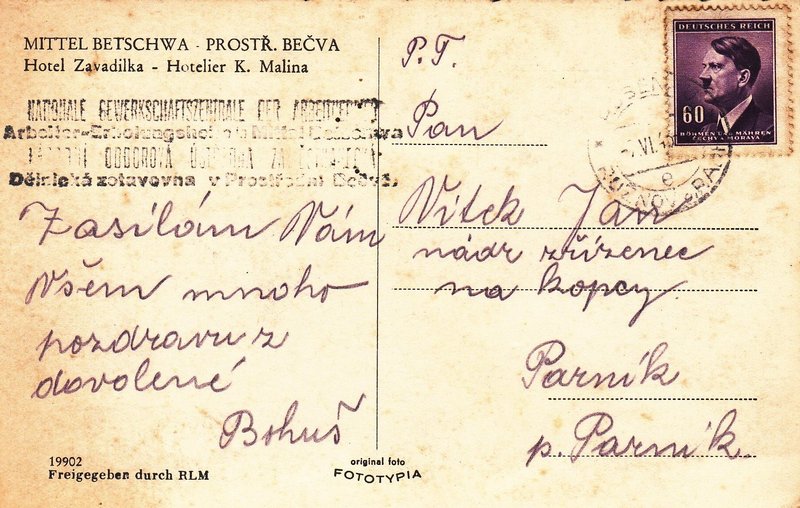 MITTEL BETSCHWA - PROSTŘ. BEČVA
Hotel Zavadilka - Hotelier K. Malina
NATIONALE GEWERKSCHAFTSZENTRALE DER ARBEITNEHMER
Arbeiter-Erholungsheim Mittel Betschwa
NÁRODNÍ ODBOROVÁ ÚSTŘEDNA ZAMĚSTNANECKÁ
Dělnická zotavovna v Prostřední Bečvě.
Zasílám Vám
Všem mnoho
pozdravu z
dovolené
Bohuš
19902
Freigegeben durch RLM
original foto
FOTOTYPIA
P. T.
Pan
Vitek Jan
nádr zřízenec
na kopcy
Parník
p. Parník
DEUTSCHES REICH
60
BÖHMEN UND MÄHREN
ČECHY A MORAVA
VI
e